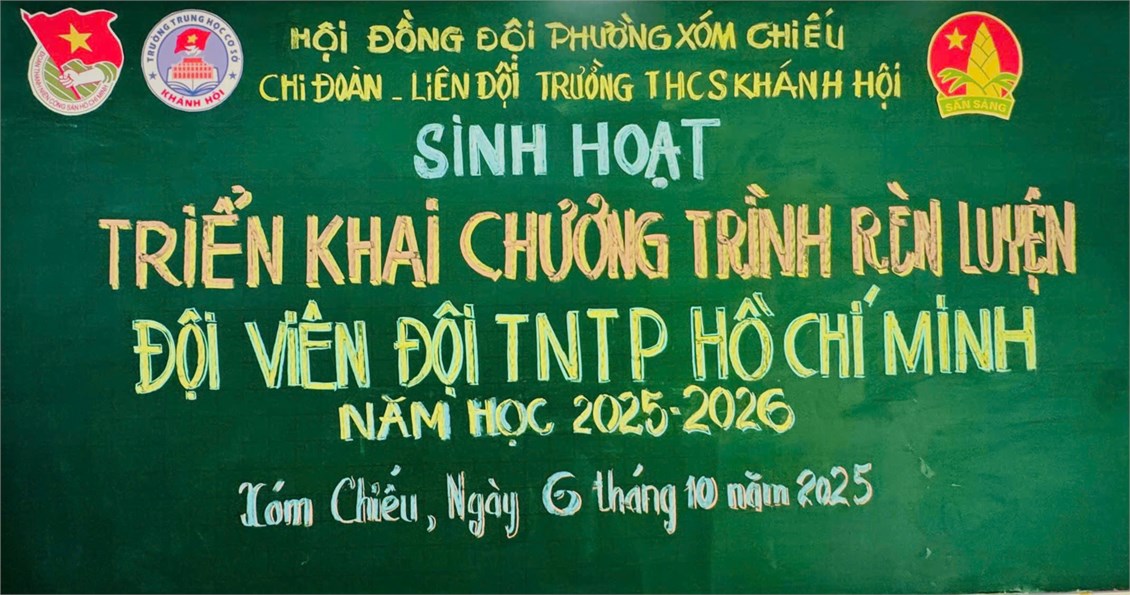 HỘI ĐỒNG ĐỘI PHƯỜNG XÓM CHIẾU
CHI ĐOÀN - LIÊN ĐỘI TRƯỜNG THCS KHÁNH HỘI
ĐOÀN THANH NIÊN CỘNG SẢN HỒ CHÍ MINH
TRƯỜNG TRUNG HỌC CƠ SỞ
KHÁNH HỘI
SẴN SÀNG
SINH HOẠT
TRIỂN KHAI CHƯƠNG TRÌNH RÈN LUYỆN
ĐỘI VIÊN ĐỘI TNTP HỒ CHÍ MINH
NĂM HỌC 2025-2026
Xóm Chiếu, Ngày 6 tháng 10 năm 2025